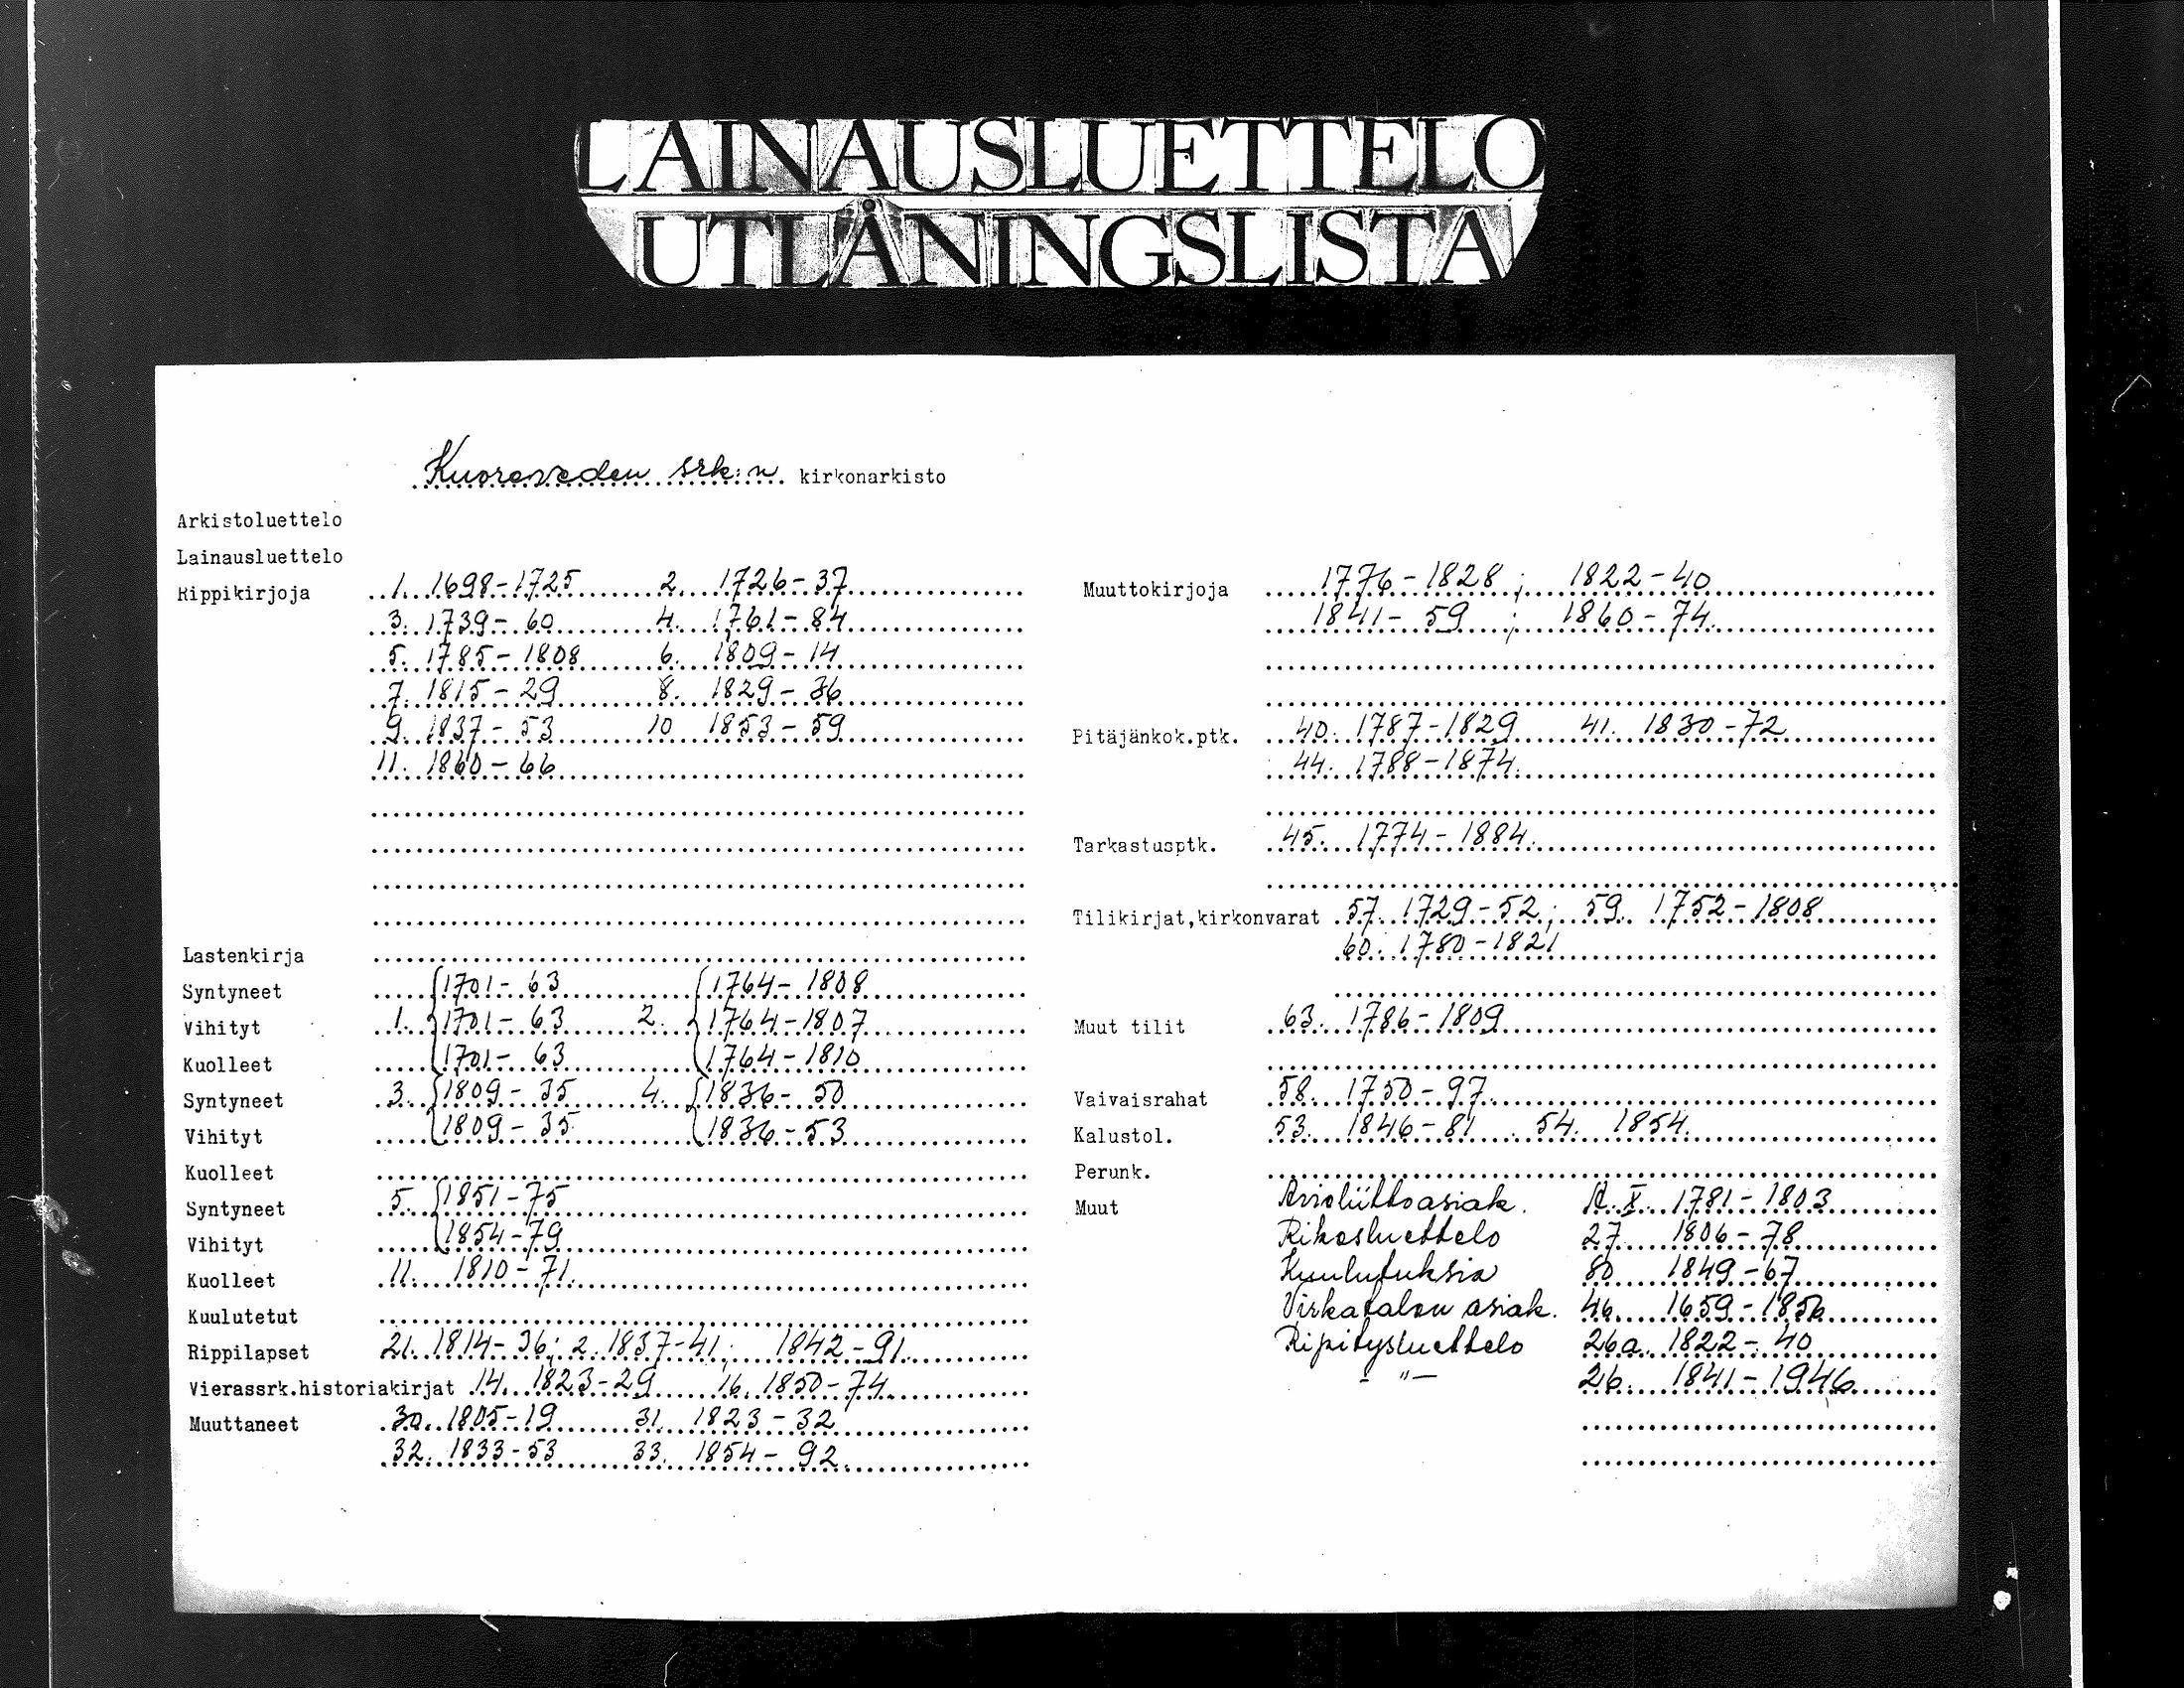 LAINAUSLUETTELO
UTLÅNINGSLISTA
Kuoreveden srk:n kirkonarkisto
Arkistoluettelo
Lainausluettelo
Rippikirjoja 1. 1698-1725 2. 1726-37
3. 1739-60 4. 1761-84
5. 1785-1808 6. 1809-14
7. 1815-29 8. 1829-36
9. 1837-53 10 1853-59
11. 1860-66
Lastenkirja
Syntyneet 1701-63 1764-1808
Vihityt 1. 1701-63 2. 1764-1807
Kuolleet 1701-63 1764-1810
Syntyneet 3. 1809-35 4. 1836-50
Vihityt 1809-35 1836-53
Kuolleet
Syntyneet 5. 1851-75
Vihityt 1854-79
Kuolleet 11. 1810-71.
Kuulutetut
Rippilapset 21. 1814-36; 2. 1837-41; 1842-91.
Vierassrk.historiakirjat 14. 1823-29 16. 1850-74.
Muuttaneet 30. 1805-19 31. 1823-32
32. 1833-53 33. 1854-92.
Muuttokirjoja 1776-1828; 1822-40
1841-59; 1860-74.
Pitäjänkok.ptk. 40. 1787-1829 41. 1830-72
44. 1788-1874.
Tarkastusptk. 45. 1774-1884.
Tilikirjat,kirkonvarat 57. 1729-52; 59. 1752-1808
60. 1780-1821
Muut tilit 63. 1786-1809
Vaivaisrahat 58. 1750-97.
Kalustol. 53. 1846-81 54. 1854.
Perunk.
Muut Avioliittoasiak. A. X. 1781-1803
Rikosluettelo 27 1806-78
Kuulutuksia 80 1849-67
Virkatalon asiak. 46. 1659-1856
Ripitysluettelo 26a. 1822-40
- " - 26. 1841-1946